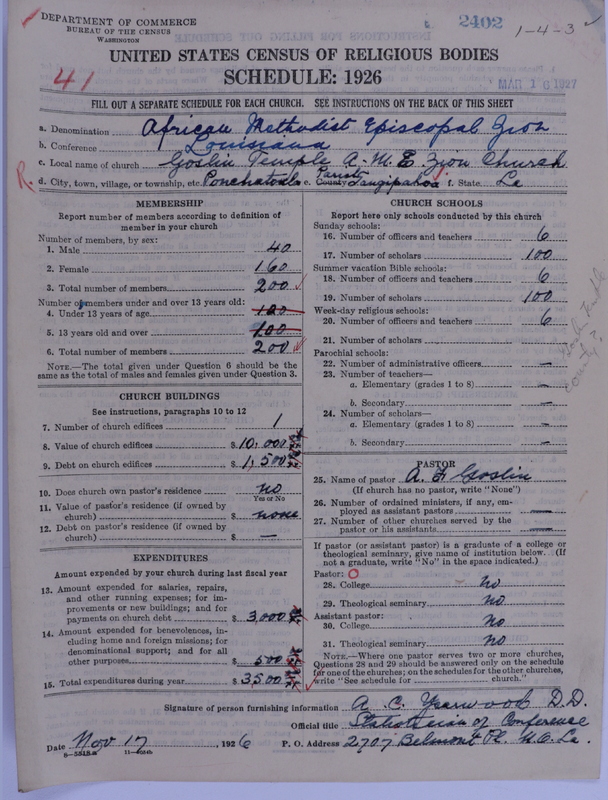 DEPARTMENT OF COMMERCE
BUREAU OF THE CENSUS
WASHINGTON
2402
1-4-3
UNITED STATES CENSUS OF RELIGIOUS BODIES
SCHEDULE: 1926
41
MAR 16 1927
FILL OUT A SEPARATE SCHEDULE FOR EACH CHURCH. SEE INSTRUCTIONS ON THE BACK OF THIS SHEET
a. Denomination African Methodist Episcopal Zion
b. Conference Louisiana
c. Local name of church Goslin Temple A. M. E. Zion Church
R.
d. City, town, village, or township, etc. Ponchatoula e. County Parish Tangipahoa f. State La
MEMBERSHIP
Report number of members according to definition of member in your church
Number of members, by sex:
1. Male 40
2. Female 160
3. Total number of members 200
Number of members under and over 13 years old:
4. Under 13 years of age 100
5. 13 years old and over 100
6. Total number of members 200
NOTE.—The total given under Question 6 should be the same as the total of males and females given under Question 3.
CHURCH BUILDINGS
See instructions, paragraphs 10 to 12
7. Number of church edifices 1
8. Value of church edifices $10,000
9. Debt on church edifices $1,500
10. Does church own pastor's residence no
Yes or No
11. Value of pastor's residence (if owned by church) $ none
12. Debt on pastor's residence (if owned by church) $ —
EXPENDITURES
Amount expended by your church during last fiscal year
13. Amount expended for salaries, repairs, and other running expenses; for improvements or new buildings; and for payments on church debt $3,000
14. Amount expended for benevolences, including home and foreign missions; for denominational support; and for all other purposes $500
15. Total expenditures during year $3500
CHURCH SCHOOLS
Report here only schools conducted by this church
Sunday schools:
16. Number of officers and teachers 6
17. Number of scholars 100
Summer vacation Bible schools:
18. Number of officers and teachers 6
19. Number of scholars 100
Week-day religious schools:
20. Number of officers and teachers 6
21. Number of scholars
Parochial schools:
22. Number of administrative officers —
23. Number of teachers—
a. Elementary (grades 1 to 8) —
b. Secondary —
24. Number of scholars—
a. Elementary (grades 1 to 8) —
b. Secondary —
PASTOR
25. Name of pastor A. E. Goslin
(If church has no pastor, write "None")
26. Number of ordained ministers, if any, employed as assistant pastors —
27. Number of other churches served by the pastor or his assistants —
If pastor (or assistant pastor) is a graduate of a college or theological seminary, give name of institution below. (If not a graduate, write "No" in the space indicated.)
Pastor:
28. College no
29. Theological seminary no
Assistant pastor:
30. College no
31. Theological seminary no
NOTE.—Where one pastor serves two or more churches, Questions 28 and 29 should be answered only on the schedule for one of the churches; on the schedules for the other churches, write "See schedule for church."
Signature of person furnishing information A. C. Yearwood D.D.
Official title Statistician of Conference
Date Nov 17 1926 P. O. Address 2707 Belmont Pl. N.O. La.